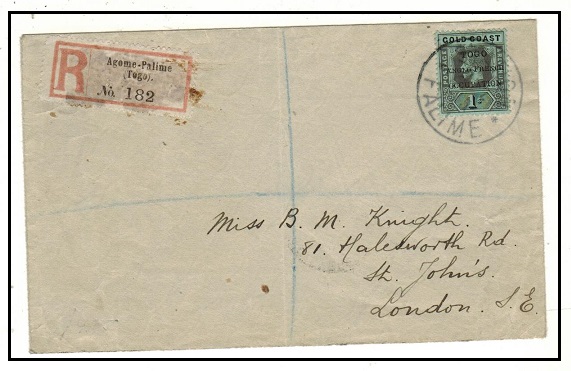 R
Agome-Palime
(Togo).
No. 182
GOLD COAST
TOGO
ANGLO-FRENCH
OCCUPATION
POSTAGE
1/-
PALIME
Miss B. M. Knight.
81. Halesworth Rd.
St. John's.
London. S.E.